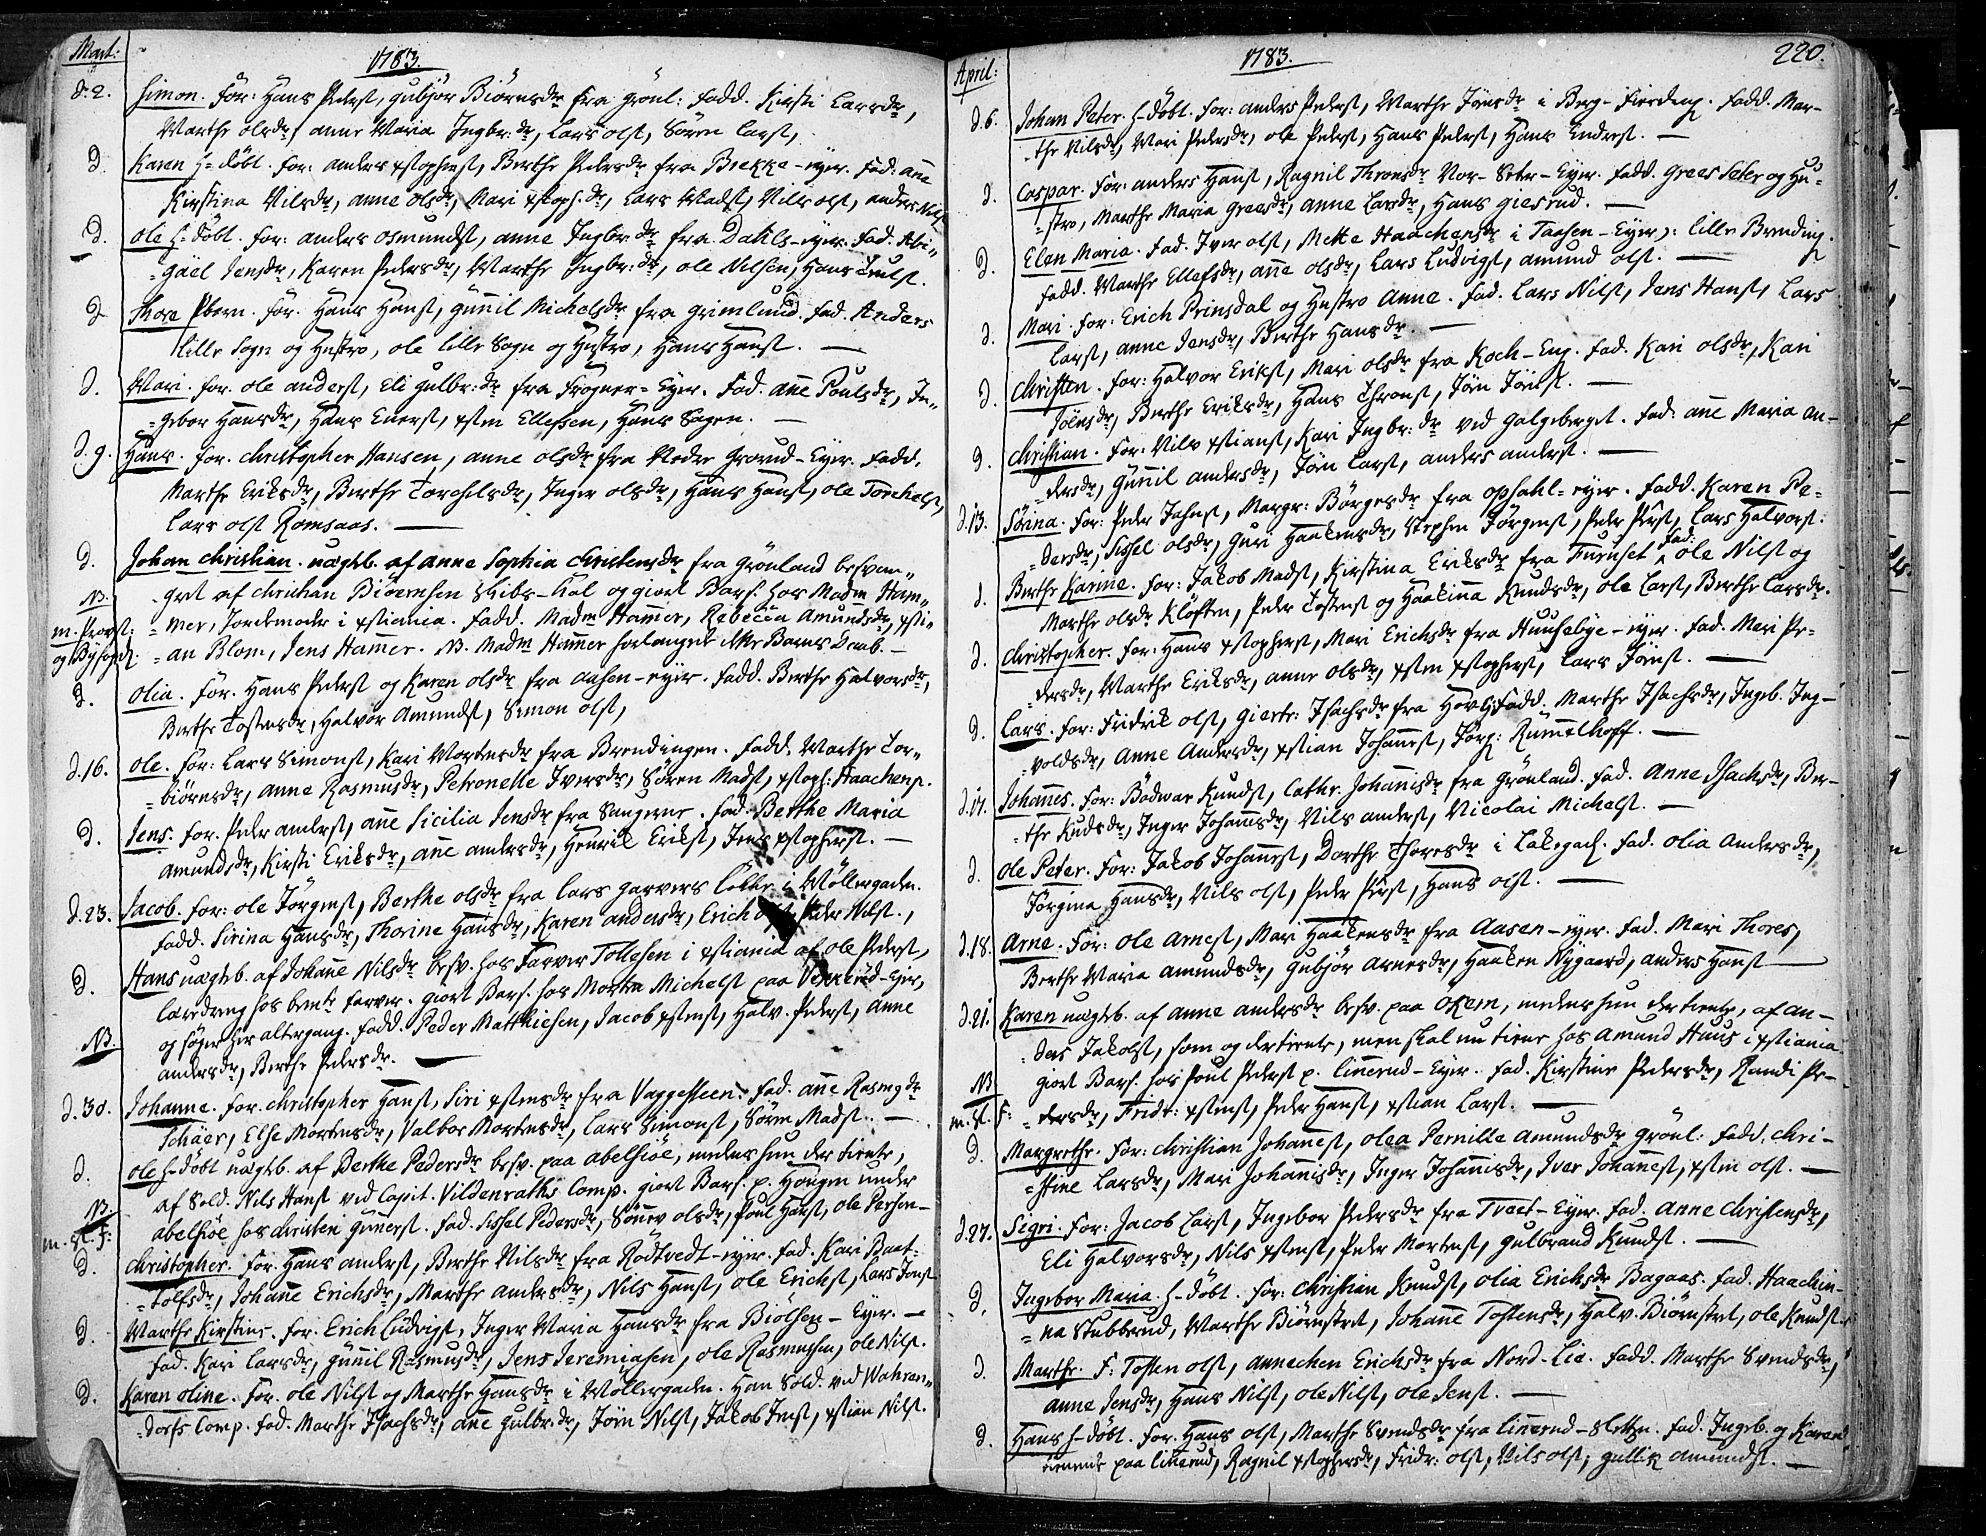 Mart:
1783.
d. 2. Simon. For: Hans Pederst, Gubjør Biørnsdr fra Grönl: Fadd. Kirsti Larsdr,
Marthe Olsdr, Anne Maria Ingbr:dr, Lars Olst, Sören Larst,
D. Karen H-döbt. For: Anders Xstopherst, Berthe Pedersdr fra Brekke-eyer. Fad: Ane
Kirstina Nilsdr, Anne Olsdr, Mari Xstoph.dr, Lars Madst, Nils Olst, Anders Nilst
D. Ole H-döbt. For: Anders Osmundst, Anne Ingbr:dr fra Dahls-eyer. Fad. Abi-
-gäel Jensdr, Karen Pedersdr, Marthe Ingbr:dr, Ole Nilsen, Hans Trulst.
D Thore Pbern. For. Hans Hanst, Gunil Michelsdr fra Grimlund. Fad. Anders
Lille Sogn og Hustro, Ole Lille Sogn og Hustro, Hans Hanst. —
D. Mari. For. Ole Anderst, Eli Gulbr:dr fra Frogner-Eyer. Fad. Ane Poulsdr, In-
-gebor Hansdr, Hans Enerst, Xsten Ellefsen, Hans Sogen. —
d. 9. Hans. For. Christopher Hansen, Anne Olsdr fra Nedre Grorud-Eyer. Fadd.
Marthe Eriksdr, Berthe Torchelsdr, Inger Olsdr, Hans Hanst, Ole Torchelst,
Lars Olst Romsaas. —
D. Johan Christian. uægtb. af Anne Sophia Christensdr fra Grönland besvan-
NB. -gret af Christian Biörnsen Skibs-Kal og giort Bars. hos Madm Ham-
m. Provst: -mer, Jordemoder i Xstiania. Fadd. Madm Hammer, Rebecca Amundsdr, Xsti-
og Byfogd. -an Blom, Jens Hammer. NB. Madm Hammer forlangede dette Barns Daab. —
D. Olia. For. Hans Pederst og Karen Olsdr fra Aasen-eyer. Fadd. Berthe Halvorsdr,
Berthe Tostensdr, Halvor Amundst, Simon Olst,
d. 16. Ole. For: Lars Simonst, Kari Mortensdr fra Brendingen. Fadd. Marthe Tor-
-biörnsdr, Anne Rasmusdr, Petronelle Iversdr, Sören Madst, Xstoph: Haachens.
D. Jens. For. Peder Anderst, Ane Sicilia Jensdr fra Taugerne. Fad. Berthe Maria
Amundsdr, Kirsti Eriksdr, Ane Andersdr, Henrik Erikst, Jens Xstopherst. —
d. 23. Jacob. For: Ole Jörgenst, Berthe Olsdr fra Lars Garvers Lökke i Möllergaden.
Fadd. Sirina Hansdr, Thorine Hansdr, Karen Andersdr, Erich Olst, Peder Nilst.,
D. Hans uægteb. af Johanne Nilsdr besv. hos Farver Tollefsen i Xstiania af Ole Pederst,
læredreng hos bemte Farver. giort Bars. hos Morten Michelst paa Vækkerud-Eyer,
NB. og söger her altergang. Fadd. Peder Matthiesen, Jacob Xstenst, Halv. Pederst, Anne
Andersdr, Berthe Pedersdr. —
d. 30. Johanne. For. Christopher Hanst, Siri Xstensdr fra Vaggesteen. Fad. Ane Rasmg dr
Schäer, Else Mortensdr, Valbor Mortensdr, Lars Simonst, Sören Madst. —
D. Ole H-döbt uægteb. af Berthe Pedersdr besv. paa Abelsöe, medens hun der tiente,
NB. af Sold. Nils Hanst ved Capit. Vildenraths Comp. giort Bars. p. Hougen under
m. st. F: Abelsöe hos Christen Gunerst. Fad. Sissel Pedersdr, Sönnev Olsdr, Poul Hanst, Ole Persen —
D. Christopher. For. Hans Anderst, Berthe Nilsdr fra Rödtvedt-eyer. Fad. Kari Baat-
-tolfsdr, Johanne Erichsdr, Marthe Andersdr, Nils Hanst, Ole Erichst, Lars Jonst
D. Marthe Kirstine. For. Erich Ludvigst, Inger Maria Hansdr fra Biölsen-Eyer. —
Fad. Kari Larsdr, Gunnil Rasmusdr, Jens Jeremiasen, Ole Rasmussen, Ole Nilst.
D. Karen Oline. For. Ole Nilst og Marthe Hansdr i Möllergaden. Han Sold. ved Wahren-
-dorfs Comp. Fad. Marthe Isachsdr, Ane Gulbr.dr, Jörn Nilst, Jakob Jenst, Xstian Nilst.
April:
1783.
220.
d. 6. Johan Peter. H-döbt. For: Anders Pederst, Marthe Jönsdr i Berg-Fierding. Fadd. Mar-
-the Nilsdr, Mari Pedersdr, Ole Pederst, Hans Pederst, Hans Enderst. —
D. Caspar. For: Anders Hanst, Ragnil Thronsdr Nor-Seter-Eyer. Fadd. Grees Seter og Hu-
-stro, Marthe Maria Greesdr, Anne Larsdr, Hans Giesrud. —
D. Elen Maria. Fad. Iver Olst, Mette Haachensdr i Taasen-Eyer,: Lille Brending.
Fadd. Marthe Ellefsdr, Ane Olsdr, Lars Ludvigst, Amund Olst. —
D. Mari. For: Erich Prinsdal og Hustro Anne. Fad. Lars Nilst, Jens Hanst, Lars
Larst, Anne Jensdr, Berthe Hansdr. —
D. Christen. For: Halvor Erikst, Mari Olsdr fra Koch-Eng. Fad. Kari Olsdr, Kari
Jöensdr, Berthe Eriksdr, Hans Thronst, Jön Jönst. —
D. Christian. For: Nils Xstianst, Kari Ingbr:dr ved Galgeberget. Fad: Ane Maria An-
-dersdr, Gunnil Andersdr, Jörn Larst, Anders Anderst. —
d. 13. Sörina. For: Peder Johnst, Margr: Börgesdr fra Opsahl-eyer. Fadd. Karen Pe-
-dersdr, Sissel Olsdr, Guri Haakensdr, Stephen Jörgenst, Peder Pderst, Lars Halvorst.
D. Berthe Karine. For: Jakob Madst, Kirstina Eriksdr fra Furuset Fad: Ole Nilst og
Marthe Olsdr Klöften, Peder Tostenst og Haakina Knudsdr, Ole Larst, Berthe Larsdr.
D. Christopher. For: Hans Xstopherst, Mari Erichsdr fra Huusebye-eyer. Fad. Mari Pe-
-dersdr, Marthe Eriksdr, Anne Olsdr, Xsten Xstopherst, Lars Jönst. —
D. Lars. For: Fridrik Olst, Giertr: Isachsdr fra Hovlj: Fadd. Marthe Isachsdr, Ingeb. Ing-
-voldsdr, Anne Andersdr, Xstian Johannest, Jörg: Rummelhoff. —
d. 17. Johannes. For: Bödwar Knudst, Cathr. Johannisdr fra Grönland. Fad. Anne Isachsdr, Ber-
-the Kudsdr, Inger Johansdr, Nils Anderst, Nicolai Michelst. —
D. Ole Peter. For: Jakob Johannest, Dorthe Thoresdr i Lakegad. Fad. Olia Andersdr,
Jörgina Hansdr, Nils Olst, Peder Pderst, Hans Olst. —
d. 18. Arne. For: Ole Arnest, Mari Haakensdr fra Aasen-eyer. Fad. Mari Thores,
Berthe Maria Amundsdr, Gubjör Arnesdr, Haaken Nygaard, Anders Hanst —
d. 21. Karen uægteb. af Anne Andersdr besv. paa Okern, medens hun der tiente, af An-
-ders Jakobst, som og der tiente, men skal nu tiene hos Amund Huus i Xstiania
NB giort Bars. hos Poul Pederst p. Linnerud-Eyer. Fad. Kirstine Pedersdr, Randi Pe-
m. st. F: -dersdr, Fridr: Xstenst, Peder Hanst, Xstian Larst. —
D. Margrethe. For: Christian Johannest, Olea Pernille Amundsdr Grönl: Fadd. Chri-
-stine Larsdr, Mari Johannisdr, Inger Johannisdr, Iver Johannest, Xsten Olst. —
d. 27. Segri. For: Jacob Larst, Ingebor Pedersdr fra Tveet-Eyer. Fad. Anne Christensdr,
Eli Halvorsdr, Nils Xstenst, Peder Mortenst, Gulbrand Knudst. —
D. Ingebor Maria. H-döbt. For: Christian Knudst, Olia Erichsdr Bagaas. Fad. Haachin-
-na Stubberud, Marthe Biörnstret, Johanne Tostensdr, Halv. Biörnstret, Ole Knudst.
D. Marthe. F: Tosten Olst, Annechen Erichsdr fra Nord-Lie. Fadd. Marthe Svendsdr,
Anne Jensdr, Hans Nilst, Ole Nilst, Ole Jenst. —
D. Hans H-döbt. For. Hans Olst, Marthe Svendsdr fra Linnerud-Sletten. Fad. Ingeb. og Karen
tienende paa Linnerud, Ragnil Xstophersdr, Fridr: Olst, Nils Olst, Gullik Amundst. —